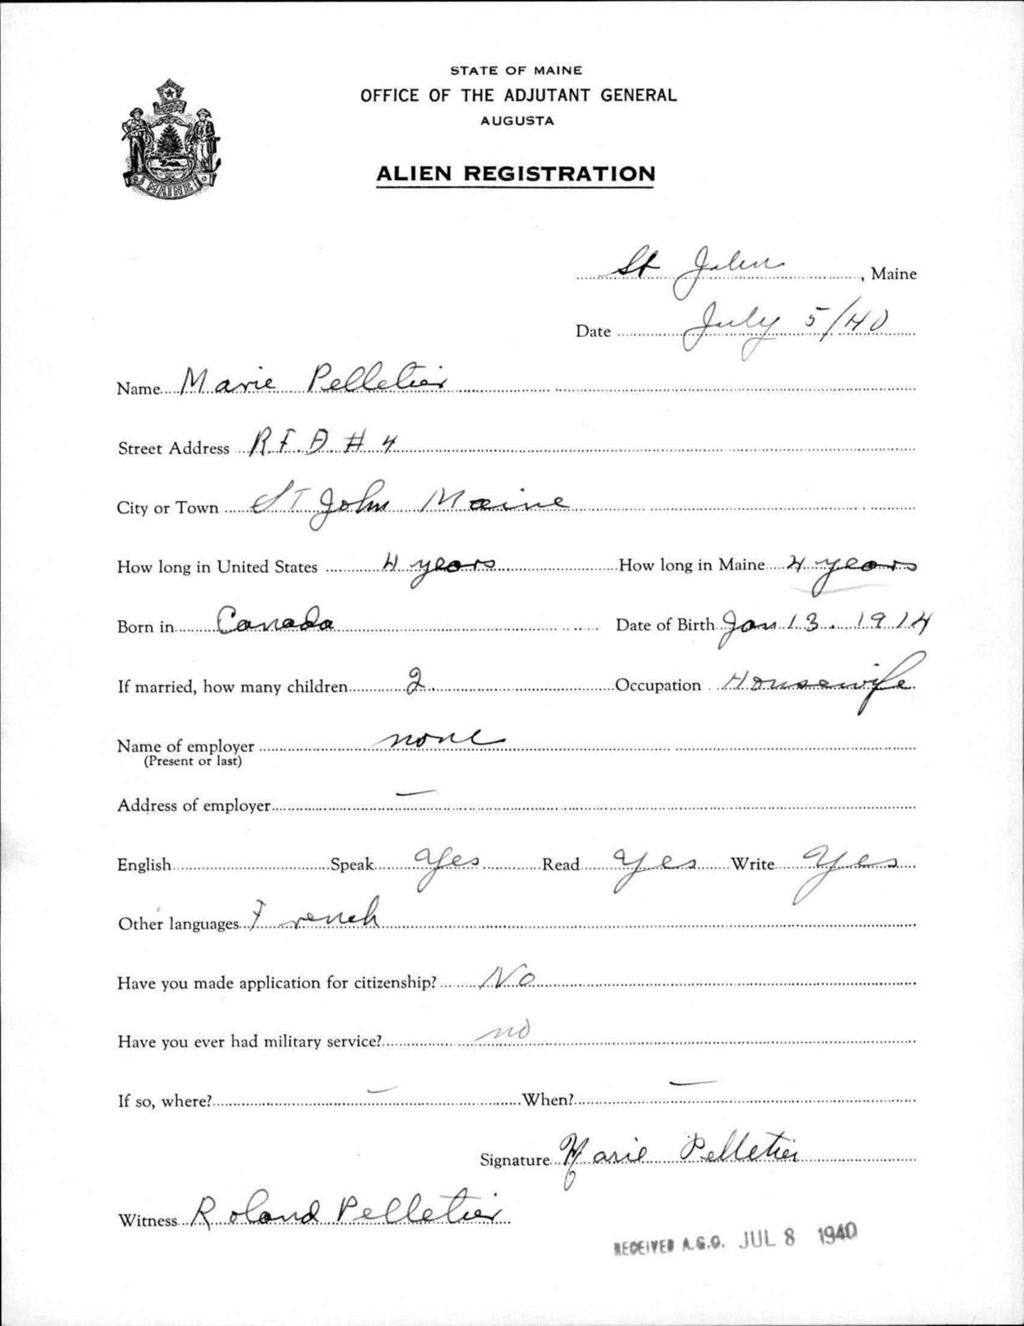 STATE OF MAINE
OFFICE OF THE ADJUTANT GENERAL
AUGUSTA
ALIEN REGISTRATION
MAINE
St John, Maine
Date July 5/40
Name Marie Pelletier
Street Address R.F.D. # 4
City or Town ST John Maine
How long in United States 4 years How long in Maine 4 years
Born in Canada Date of Birth Jan 13. 1914
If married, how many children 2 Occupation Housewife
Name of employer none
(Present or last)
Address of employer —
English Speak Yes Read Yes Write Yes
Other languages French
Have you made application for citizenship? No
Have you ever had military service? no
If so, where? — When? —
Signature Marie Pelletier
Witness Roland Pelletier
RECEIVED A.G.O. JUL 8 1940